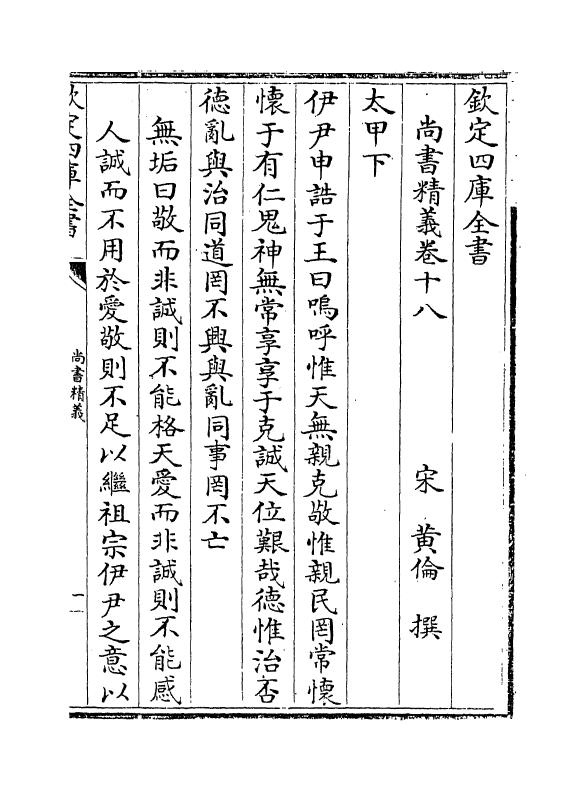 欽定四庫全書
尚書精義卷十八　宋　黃倫　撰
太甲下
伊尹申誥于王曰嗚呼惟天無親克敬惟親民罔常懷
懷于有仁鬼神無常享享于克誠天位艱哉德惟治否
德亂與治同道罔不興與亂同事罔不亡
無垢曰敬而非誠則不能格天愛而非誠則不能感
人誠而不用於愛敬則不足以繼祖宗伊尹之意以
欽定四庫全書
尚書精義
一